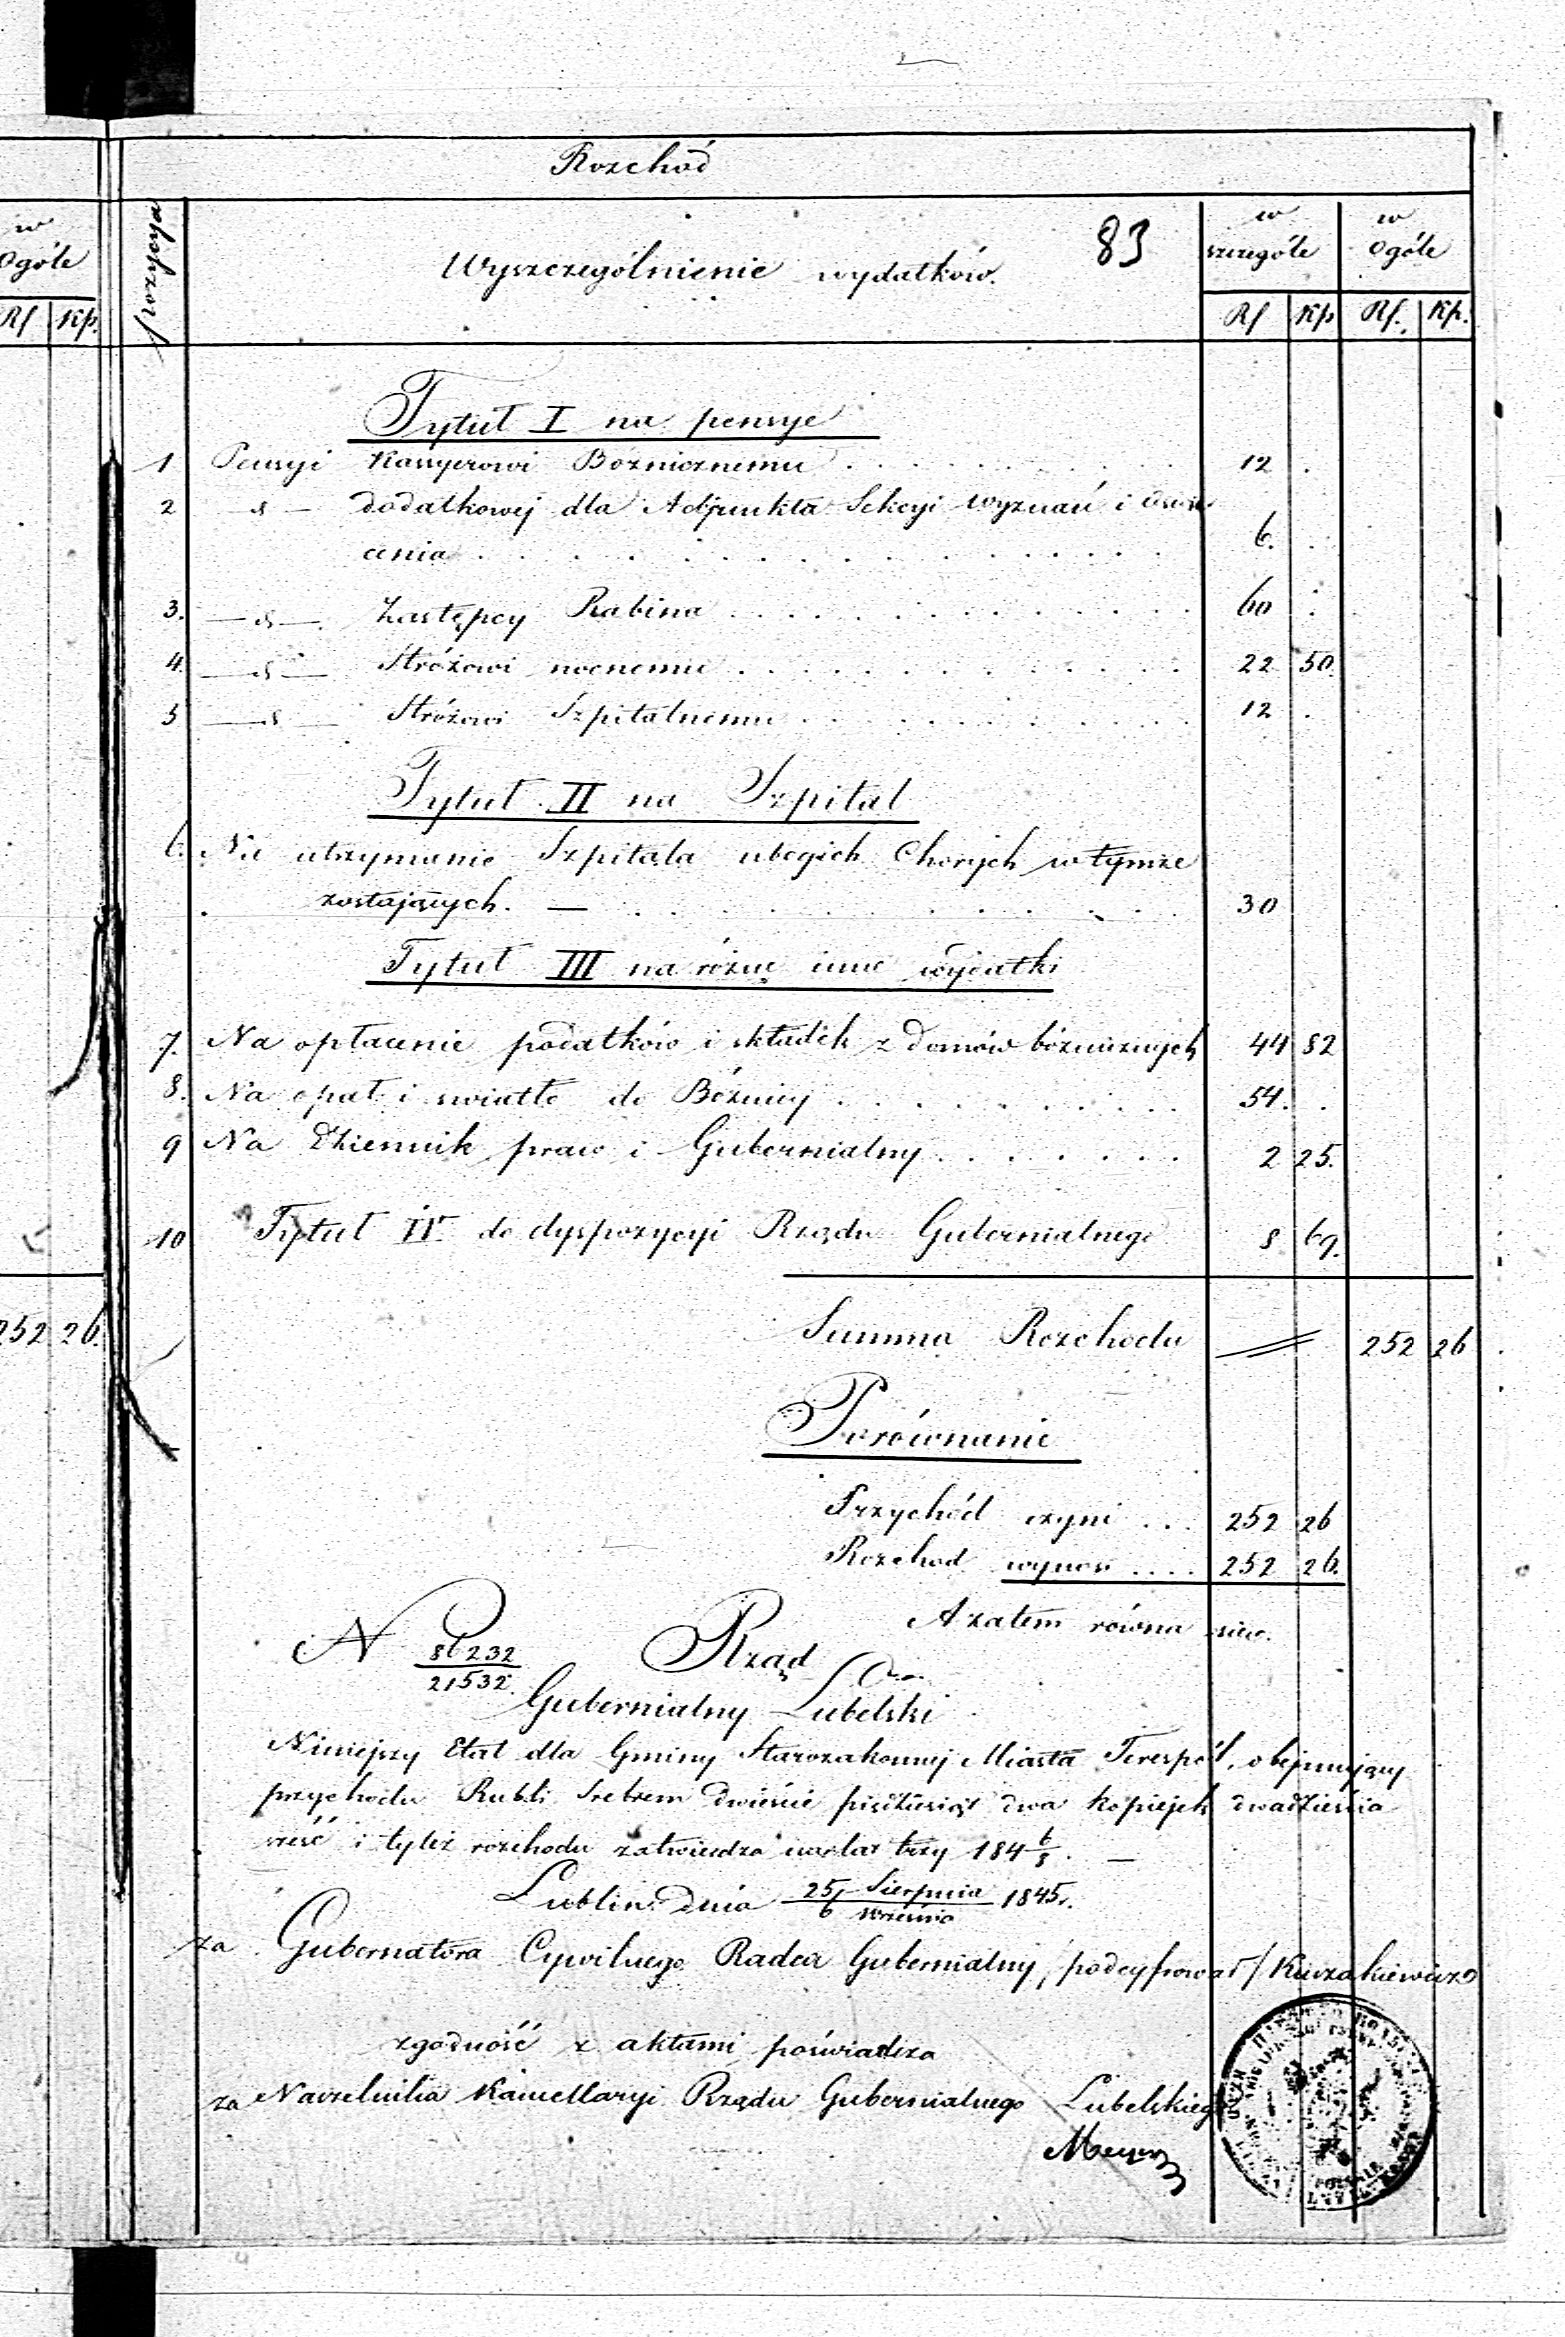 Rozchód
w
Ogóle
Rs Kp.
pozycya
Wyszczególnienie wydatków.
83
w szczególe
w Ogóle
Rs Kp Rs. Kp.
Tytuł I na pensye
1 Pensyi Kassyerowi Bożnicznemu 12 .
2 — d — dodatkowej dla Adjunkta Sekcyi Wyznań i Oswie
cenia 6. .
3. — d — Zastępcy Rabina 60 .
4. — d — Stróżowi nocnemu 22 50.
5 — d — Stróżowi Szpitalnemu 12 .
Tytuł II na Szpital
6. Na utrzymanie Szpitala ubogich Chorych w tymże
zostających. — 30
Tytuł III na różne inne wydatki
7. Na opłacenie podatków i składek z domów bóżnicznych 44 82
8. Na opał i swiatło do Bóżnicy 54. .
9 Na Dziennik praw i Gubernialny 2 25.
10 Tytuł IV. do dyspozycyi Rządu Gubernialnego 8 69.
252 26.
Summa Rozchodu 252 26
Porównanie
Przychód czyni ... 252 26
Rozchod wynosi .... 252 26.
A zatem równa się.
N 86232
21532.
Rząd
Gubernialny Lubelski
Niniejszy Etat dla Gminy Starozakonnej Miasta Terespol, obejmujący
przychodu Rubli Srebrem dwieście pięćdziesiąt dwa kopiejek dwadzieścia
sześć i tyleż rozchodu zatwierdza na lat trzy 184 6/8. —
Lublin dnia 25 Sierpnia / 6 Września 1845 r.
za Gubernatora Cywilnego Radca Gubernialny, podcyfrował / Kuczakiewicz
zgodność z aktami poświadcza
za Naczelnika Kancellaryi Rządu Gubernialnego Lubelskiego